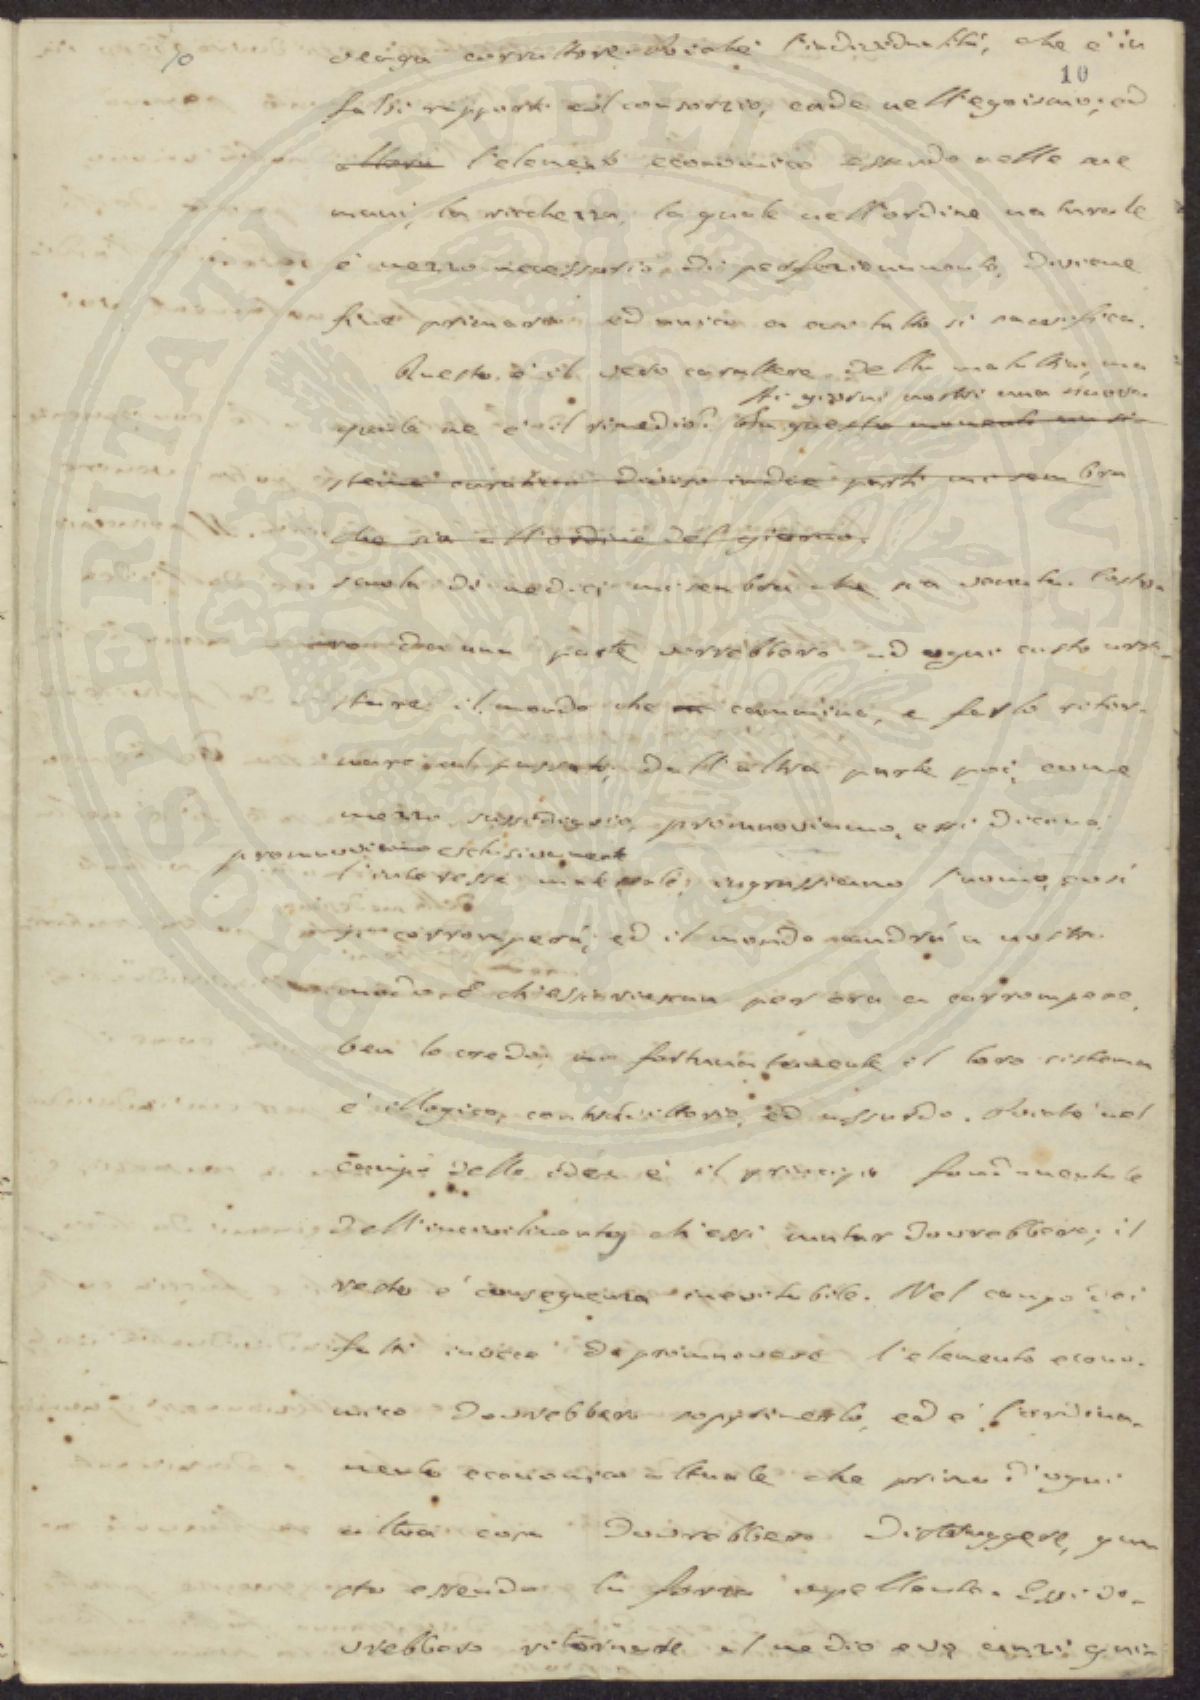 10
venga corruttore. Poiché l'individualità, che è in
falsi rapporti col consorzio, cade nell'egoismo; ed
allora l'elemento economico essendo nelle sue
mani, la ricchezza, la quale nell'ordine naturale
è mezzo necessario di perfezionamento, diviene
fine primario ed unico a cui tutto si sacrifica.
Questo è il vero carattere della malattia, ma
Ai giorni nostri una nuova
quale ne è il rimedio? In questo momento un si-
stema curativo diviso in due parti mi sembra
che sia all'ordine del giorno.
scuola di medici mi sembra che sia venuta. Costo-
ro da una parte vorrebbero ad ogni costo arre-
stare il mondo che cammina, e farlo ritor-
nare al passato, dall'altra parte poi, come
mezzo sussidiario, promuoviamo, essi dicono,
promuoviamo esclusivamente
l'interesse materiale, ingrassiamo l'uomo, così
si corromperà, ed il mondo andrà a nostro
modo. E ch'essi riescan per ora a corrompere,
ben lo credo, ma fortunatamente il loro sistema
è illogico, contradittorio, ed assurdo. Poiché nel
campo delle idee è il principio fondamentale
dell'incivilimento ch'essi mutar dovrebbero; il
resto è conseguenza inevitabile. Nel campo dei
fatti invece di promuovere l'elemento econo-
mico dovrebbero sopprimerlo, ed è l'ordina-
mento economico attuale che prima d'ogni
altra cosa dovrebbero distruggere, que-
sta essendo la forza impellente. Essi do-
vrebbero ritornare al medio evo anzi
PROSPERITATI PUBLICAE AUGENDAE